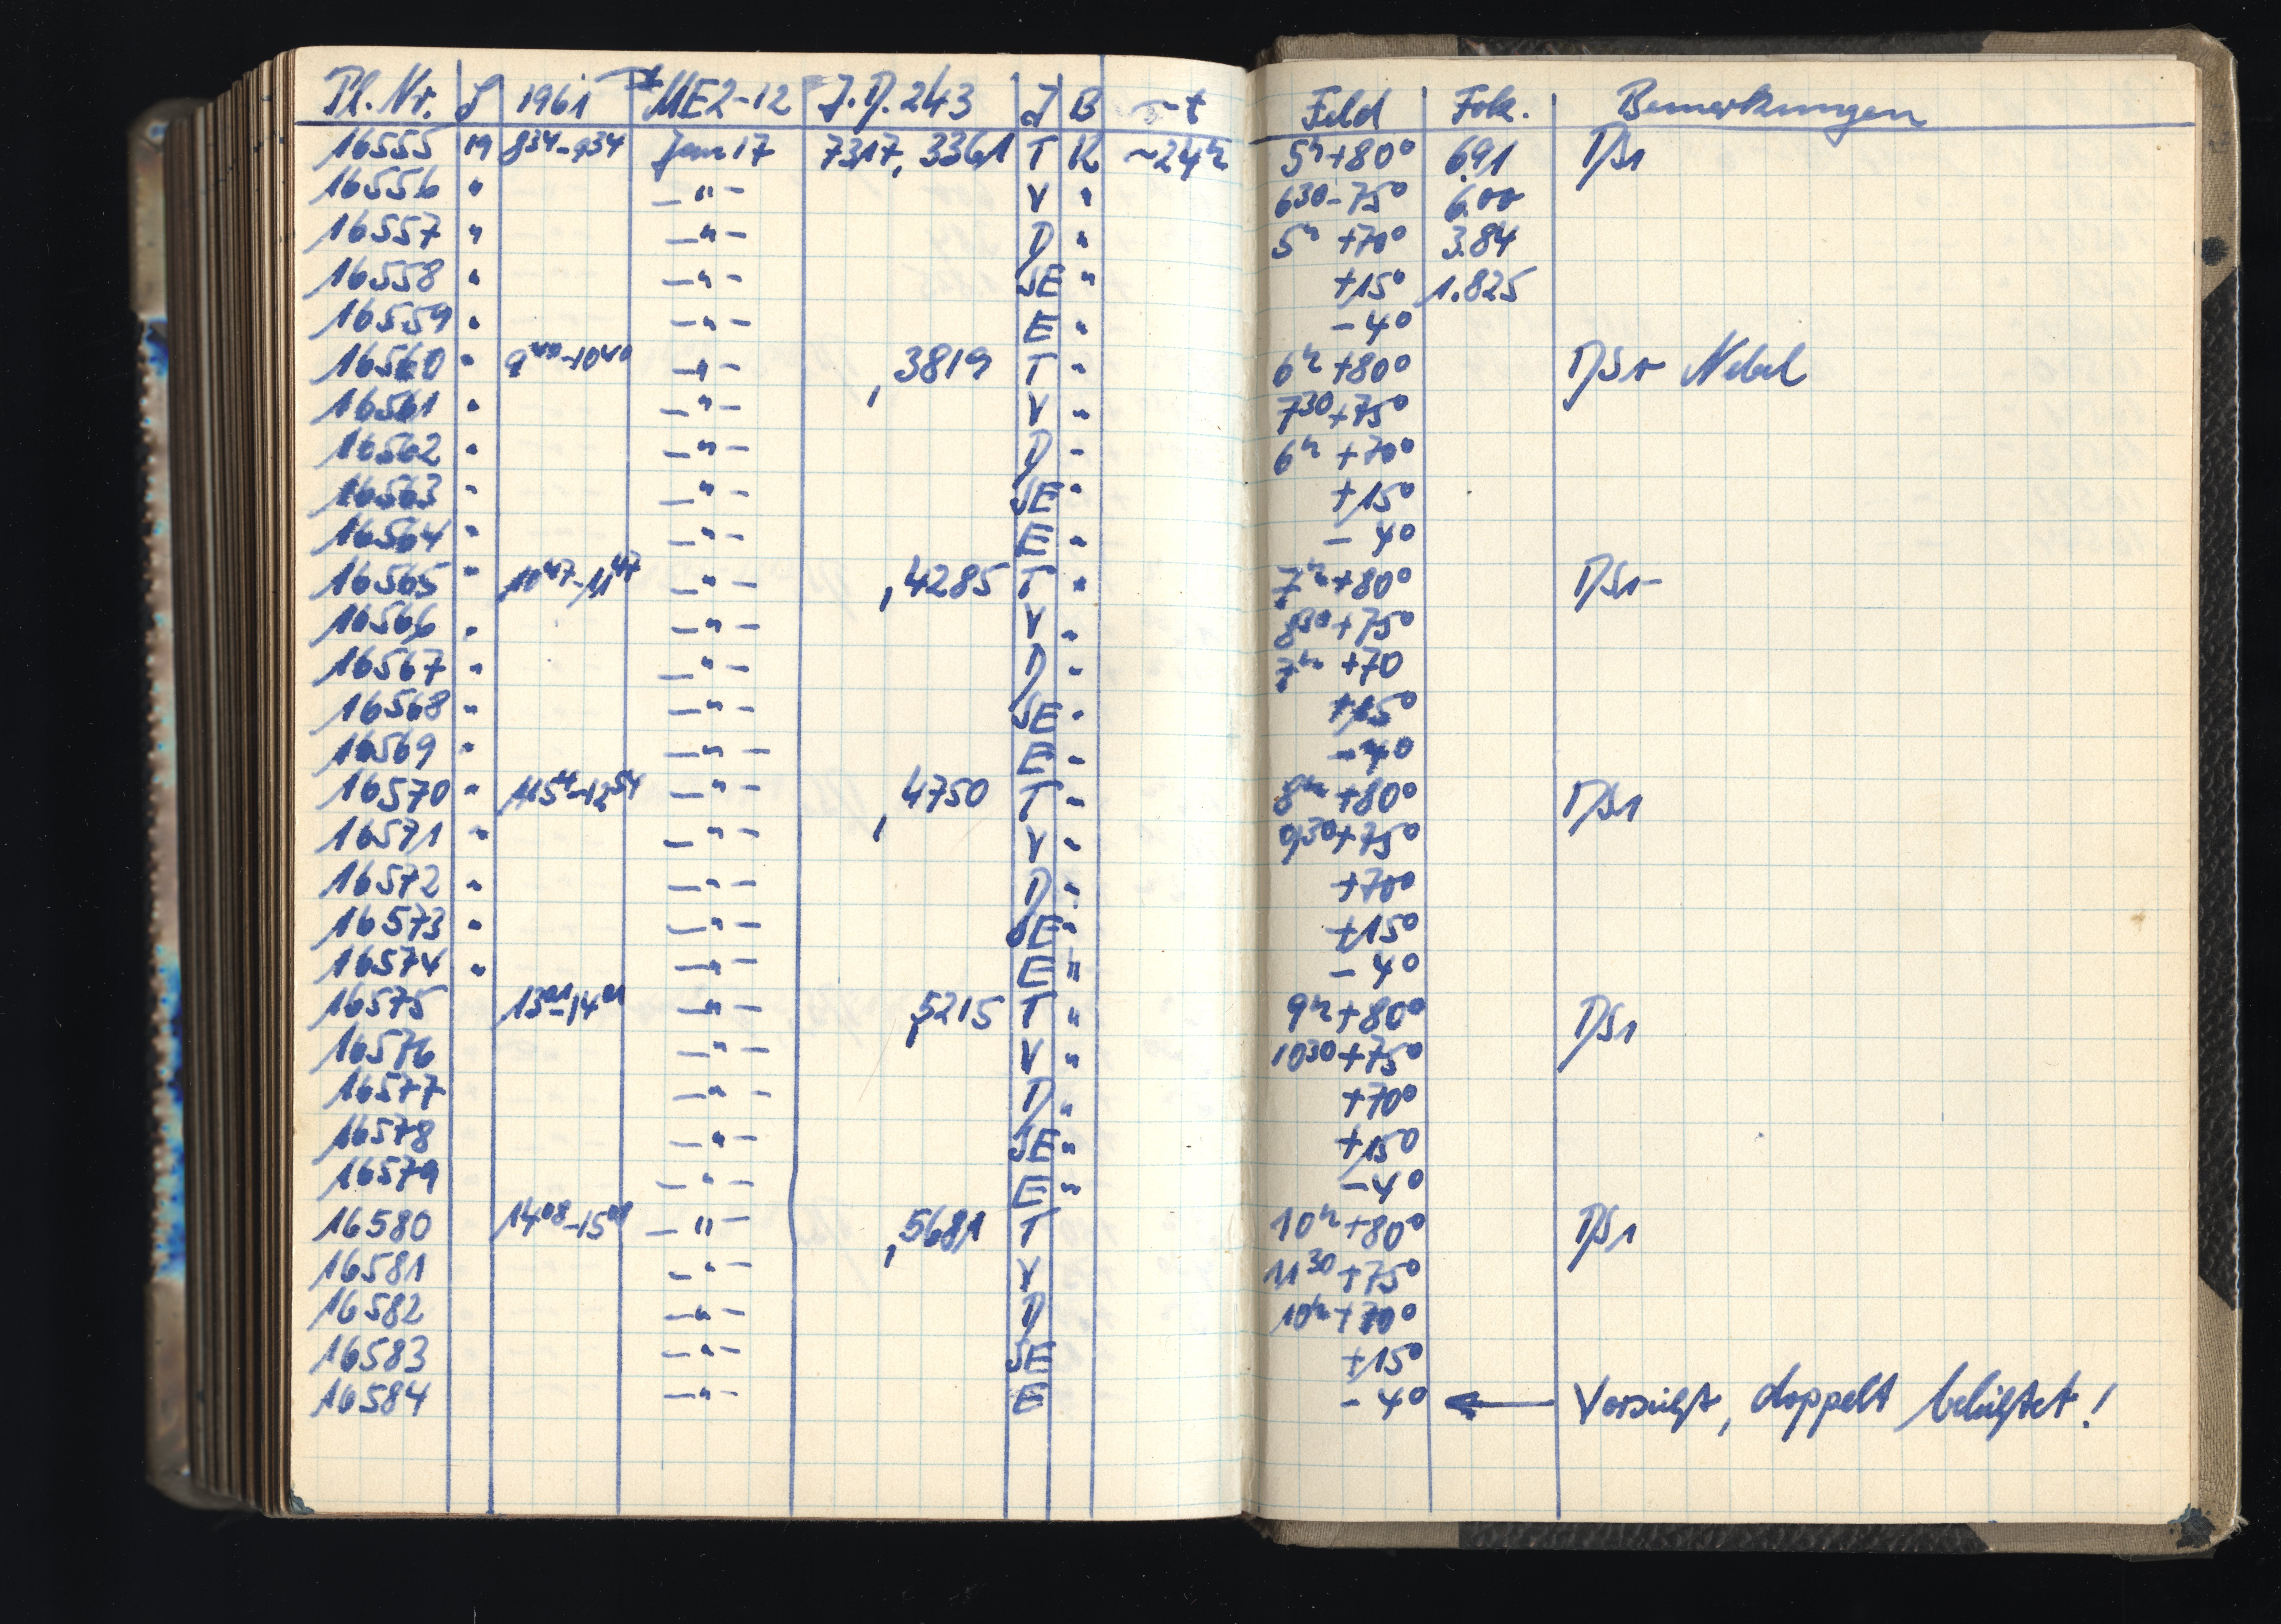 Pl. Nr. S 1961 MEZ-12 J.D. 243 J B t Feld Fok. Bemerkungen
16555 19 8³⁴-9³⁴ Jan 17 7317,3361 T K ~24ʰ 5ʰ+80° 6.91 DS1
16556 " —"— V " 6³⁰-75° 6.00
16557 " —"— D " 5ʰ +70° 3.84
16558 " —"— SE " +15° 1.825
16559 " —"— E " -4°
16560 " 9⁴⁰-10⁴⁰ —"— ,3819 T " 6ʰ+80° DS1- Nebel
16561 " —"— V " 7³⁰+75°
16562 " —"— D " 6ʰ +70°
16563 " —"— SE " +15°
16564 " —"— E " -4°
16565 " 10⁴⁷-11⁴⁷ —"— ,4285 T " 7ʰ+80° DS1-
16566 " —"— V " 8³⁰+75°
16567 " —"— D " 7ʰ +70
16568 " —"— SE " +15°
16569 " —"— E " -4°
16570 " 11⁵⁴-12⁵⁴ —"— ,4750 T " 8ʰ+80° DS1
16571 " —"— V " 9³⁰+75°
16572 " —"— D " +70°
16573 " —"— SE " +15°
16574 " —"— E " -4°
16575 13⁰¹-14⁰¹ —"— ,5215 T " 9ʰ+80° DS1
16576 —"— V " 10³⁰+75°
16577 —"— D " +70°
16578 —"— SE " +15°
16579 —"— E " -4°
16580 14⁰⁸-15⁰⁸ —"— ,5681 T 10ʰ+80° DS1
16581 —"— V 11³⁰+75°
16582 —"— D 10ʰ+70°
16583 —"— SE +15°
16584 —"— E -4° ← Vorsicht, doppelt belichtet!